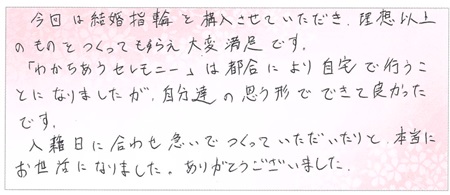 今回は結婚指輪と構入させていただき、理想以上
のものとつくってもらえ大変満足です。
「わかちあうセレモニー」は都合により自宅で行うこ
とになりましたが、自分達の思う形でできて良かった
です。
入籍日に合わせ急いでつくっていただいたりと、本当に
お世話になりました。ありがとうございました。